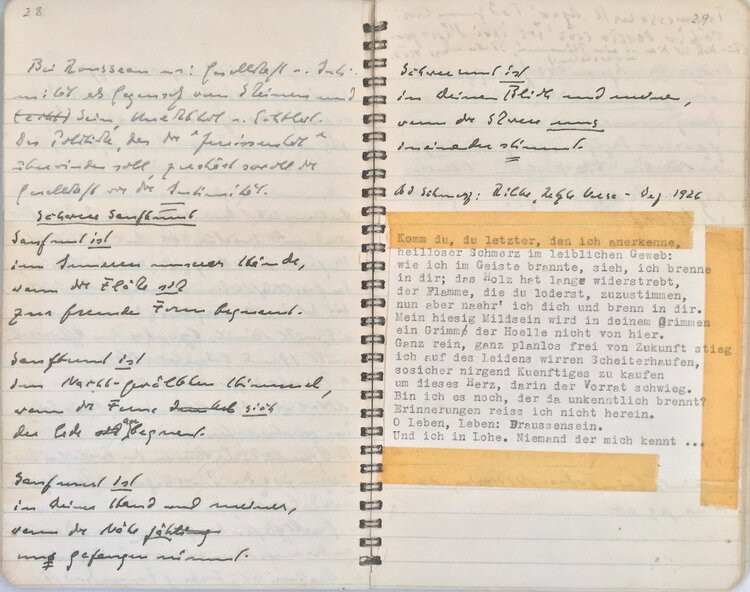 28
Bei Rousseau : Gesellschaft u. Inti-
mität als Gegensatz von Scheinen und
(echt) Sein, Unechtheit u. Echtheit.
Das Politische, das die "Zerrissenheit"
überwinden soll, zerstört sowohl die
Gesellschaft wie die Intimität.
Schwere Sanftmut
Sanftmut ist
im Inneren unserer Hände,
wenn die Fläche sich
zur fremden Form bequemt.
Sanftmut ist
im Nacht-gewölbten Himmel,
wenn die Ferne sich
der Erde anbequemt.
Sanftmut ist
in Deiner Hand und meiner,
wenn die Nähe jählings
uns gefangen nimmt.
29
Schwermut ist
in Deinem Blick und meinem,
wenn die Schwere uns
ineinander stimmt
Ad Schmerz: Rilke, letzte Verse - Dez 1926
Komm du, du letzter, den ich anerkenne,
heilloser Schmerz im leiblichen Geweb:
wie ich im Geiste brannte, sieh, ich brenne
in dir; das Holz hat lange widerstrebt,
der Flamme, die du loderst, zuzustimmen,
nun aber naehr' ich dich und brenn in dir.
Mein hiesig Mildsein wird in deinem Grimmen
ein Grimm der Hoelle nicht von hier.
Ganz rein, ganz planlos frei von Zukunft stieg
ich auf des Leidens wirren Scheiterhaufen,
sosicher nirgend Kuenftiges zu kaufen
um dieses Herz, darin der Vorrat schwieg.
Bin ich es noch, der da unkenntlich brennt?
Erinnerungen reiss ich nicht herein.
O Leben, Leben: Draussensein.
Und ich in Lohe. Niemand der mich kennt ...